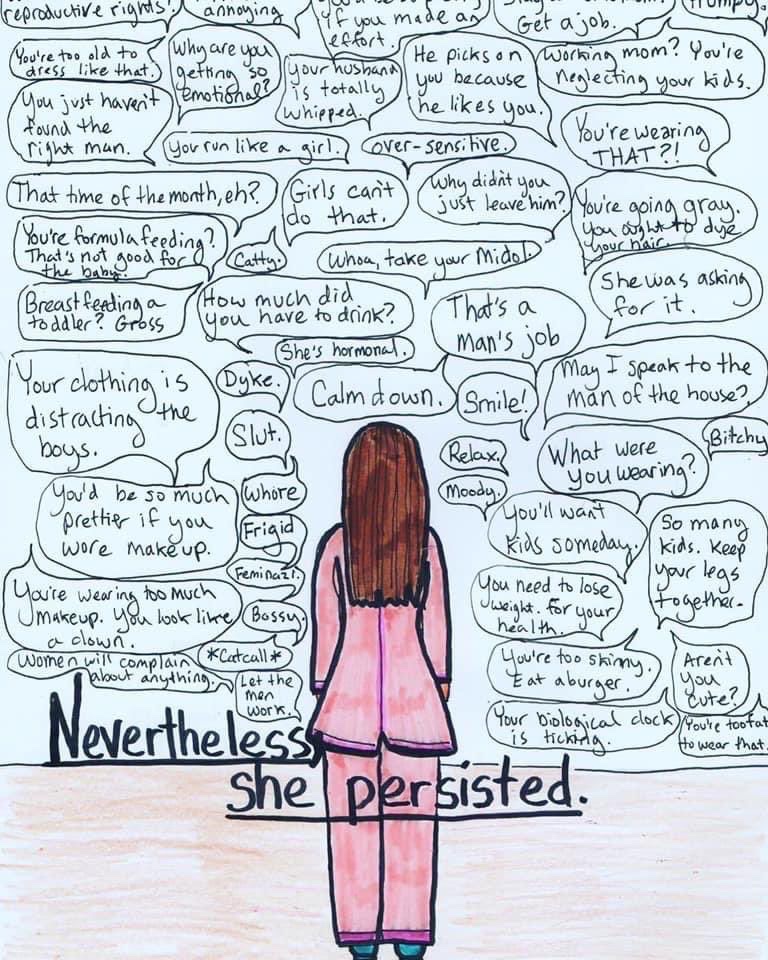 reproductive rights!
annoying
if you made an
effort.
Get a job.
You're too old to
dress like that.
Why are you
getting so
emotional?
Your husband
is totally
whipped.
He picks on
you because
he likes you.
Working mom? You're
neglecting your kids.
You just haven't
found the
right man.
You run like a girl.
over-sensitive.
You're wearing
THAT?!
That time of the month, eh?
Girls can't
do that.
Why didn't you
just leave him?
You're going gray.
You ought to dye
your hair.
You're formula feeding?
That's not good for
the baby.
Catty.
Whoa, take your Midol.
She was asking
for it.
Breastfeeding a
toddler? Gross
How much did
you have to drink?
That's a
man's job
She's hormonal.
May I speak to the
man of the house?
Your clothing is
distracting the
boys.
Dyke.
Calm down.
Smile!
Slut.
Relax.
What were
you wearing?
Bitchy
You'd be so much
prettier if you
wore makeup.
Whore
Moody.
Frigid
You'll want
kids someday.
So many
kids. Keep
your legs
together.
Feminazi.
You're wearing too much
makeup. You look like
a clown.
Bossy.
You need to lose
weight. For your
health.
Women will complain
about anything.
*Catcall*
You're too skinny.
Eat a burger.
Aren't
you
cute?
Let the
men
work.
Your biological clock
is ticking.
You're too fat
to wear that.
Nevertheless,
she persisted.